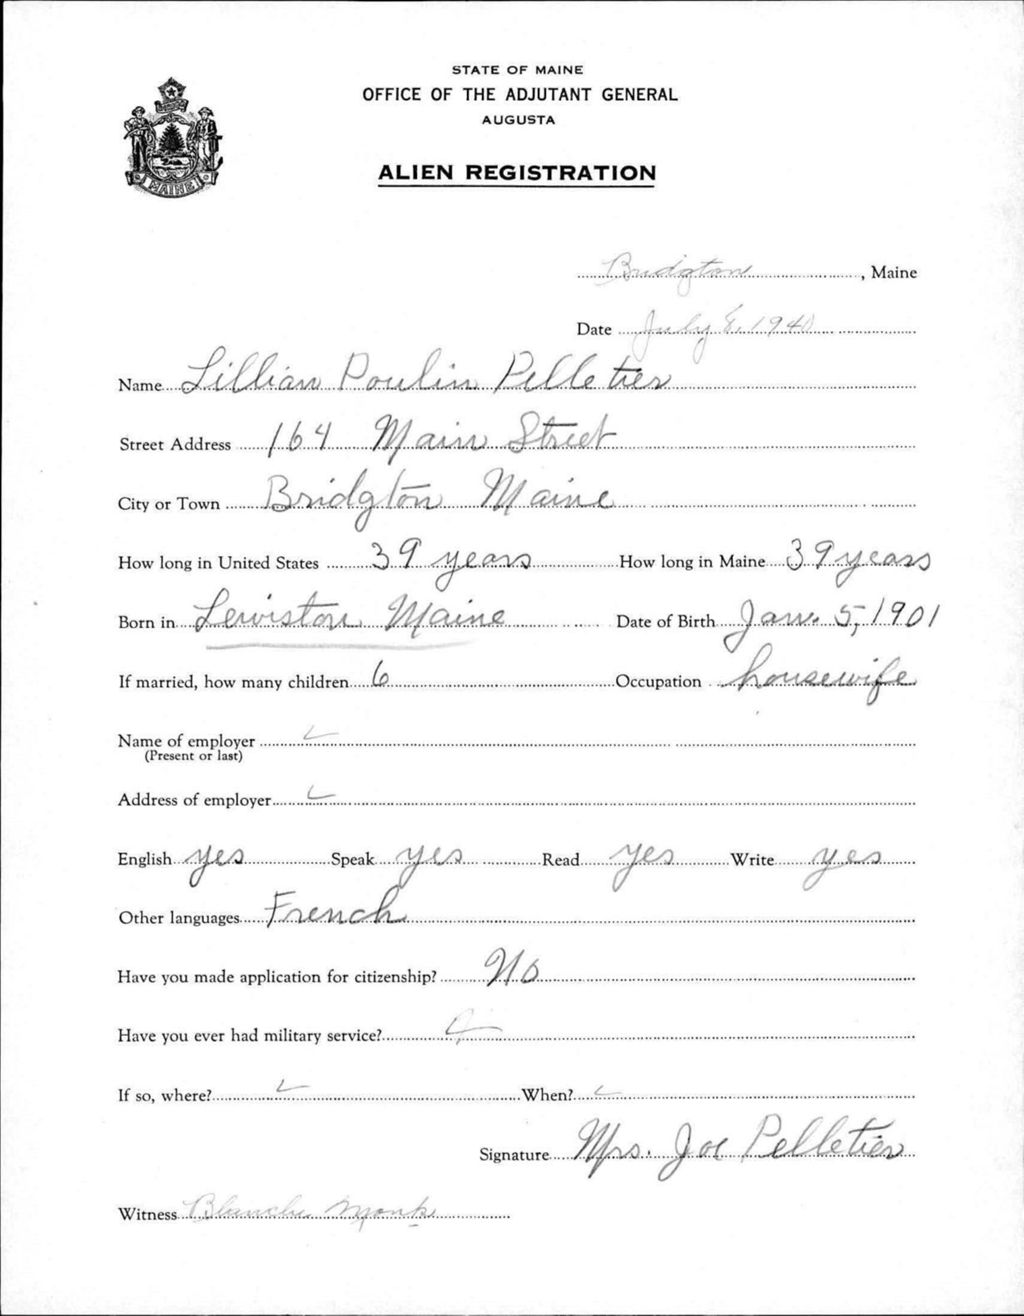 STATE OF MAINE
OFFICE OF THE ADJUTANT GENERAL
AUGUSTA
ALIEN REGISTRATION
MAINE
Bridgton, Maine
Date July 8, 1940
Name Lillian Poulin Pelletier
Street Address 164 Main Street
City or Town Bridgton Maine
How long in United States 39 years How long in Maine 39 years
Born in Lewiston Maine Date of Birth Jan. 5, 1901
If married, how many children 6 Occupation housewife
Name of employer
(Present or last)
Address of employer
English yes Speak yes Read yes Write yes
Other languages French
Have you made application for citizenship? No
Have you ever had military service?
If so, where? When?
Signature Mrs. Joe Pelletier
Witness Blanche Monk